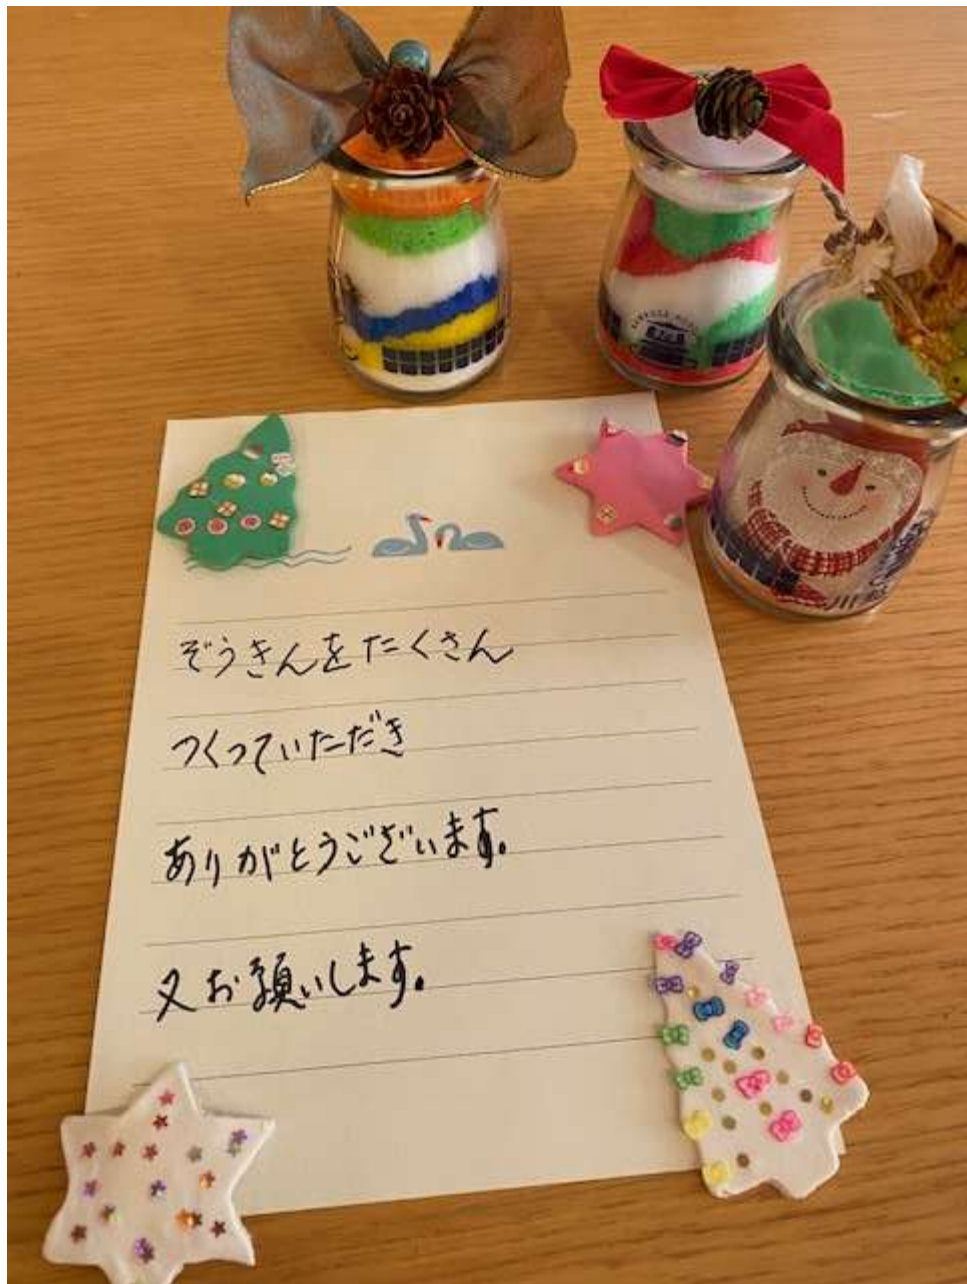 ぞうきんをたくさん
つくっていただき
ありがとうございます。
又お願いします。